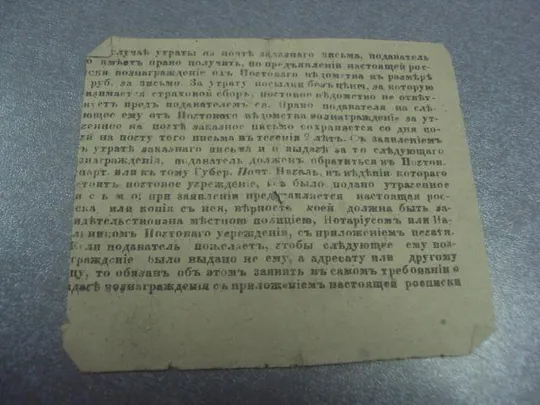 случаѣ утраты на почтѣ заказнаго письма, податель
имѣетъ право получить, по предъявленіи настоящей рос-
ски вознагражденіе отъ Почтоваго вѣдомства въ размѣрѣ
руб. за письмо. За утрату посылки безъ цѣны, за которую
взимается страховой сборъ, почтовое вѣдомство не отвѣ-
предъ подателемъ ея. Право подателя на слѣ-
ющее ему отъ Почтоваго вѣдомства вознагражденіе за ут-
ченное на почтѣ заказное письмо сохраняется со дня по-
чи на почту того письма въ теченіи 2 лѣтъ. Съ заявленіемъ
утратѣ заказнаго письма и о выдачѣ за то слѣдующаго
знагражденія, податель долженъ обратиться въ Почтов.
парт. или къ тому Губер. Почт. Началь. въ вѣдѣніи котораго
стоитъ почтовое учрежденіе, гдѣ было подано утраченное
сьмо; при заявленіи представляется настоящая рос-
ска или копія съ нея, вѣрность коей должна быть за-
идѣтельствована мѣстною полиціею, Нотаріусомъ или На-
льникомъ Почтоваго учрежденія, съ приложеніемъ печати.
сли податель пожелаетъ, чтобы слѣдующее ему воз-
гражденіе было выдано не ему, а адресату или другому
цу, то обязанъ объ этомъ заявить въ самомъ требованіи о
дачѣ вознагражденія съ приложеніемъ настоящей росписки